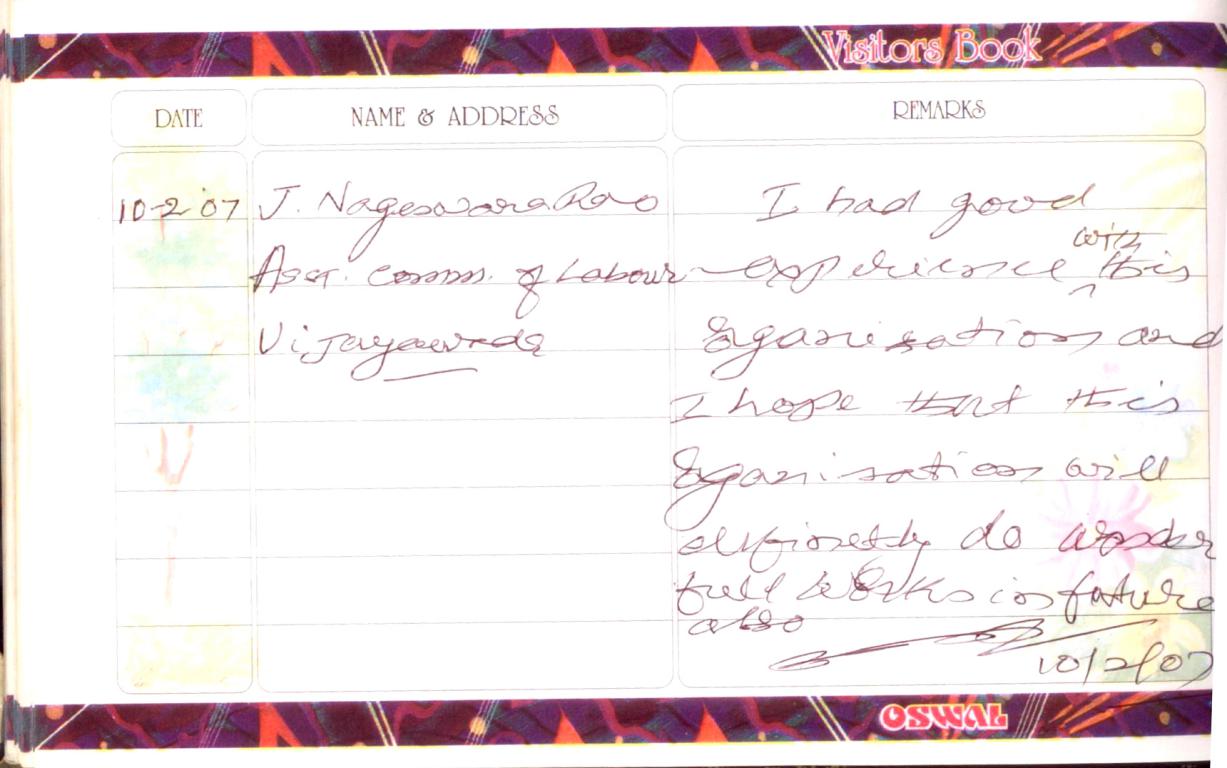 Visitors Book
DATE
NAME & ADDRESS
REMARKS
10-2-07
J. Nageswara Rao
Asst. comm. of Labour
Vijayawada
I had good
experience with this
Organisation and
I hope that this
Organisation will
definetly do wonder
full works in future
also
10/2/07
OSWAL